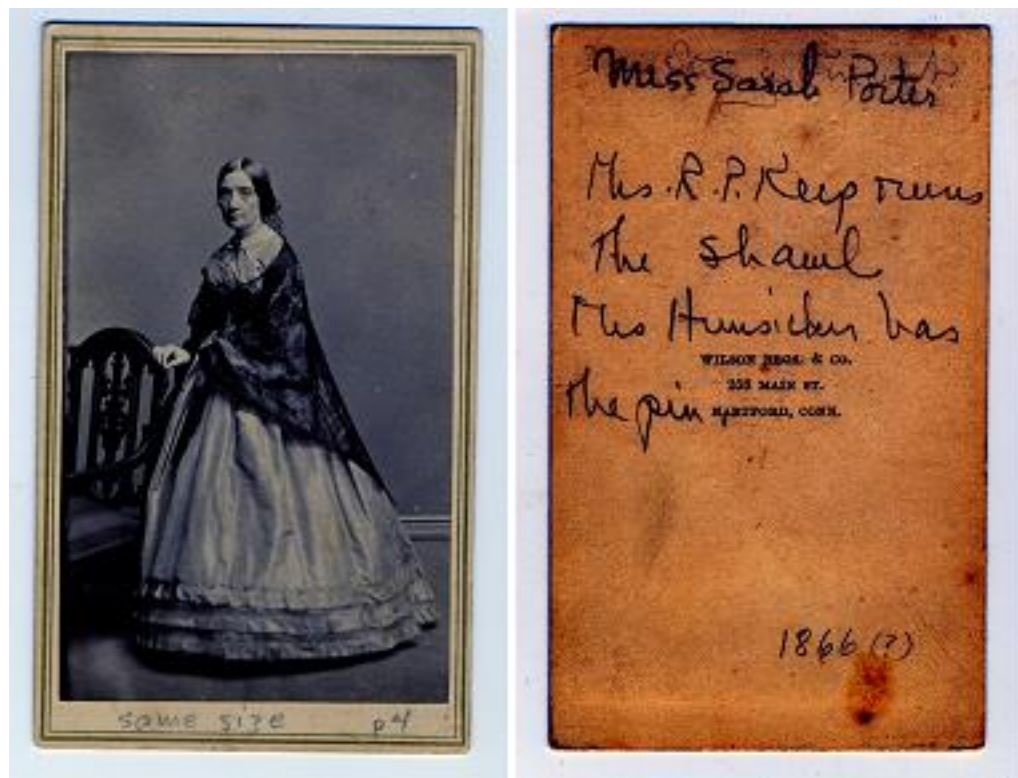 same size p4
Miss Sarah Porter
Mrs. R. P. Keep owns
the shawl
Mrs Hunsicker has
WILSON BROS. & CO.
255 MAIN ST.
the pin HARTFORD, CONN.
1866 (?)